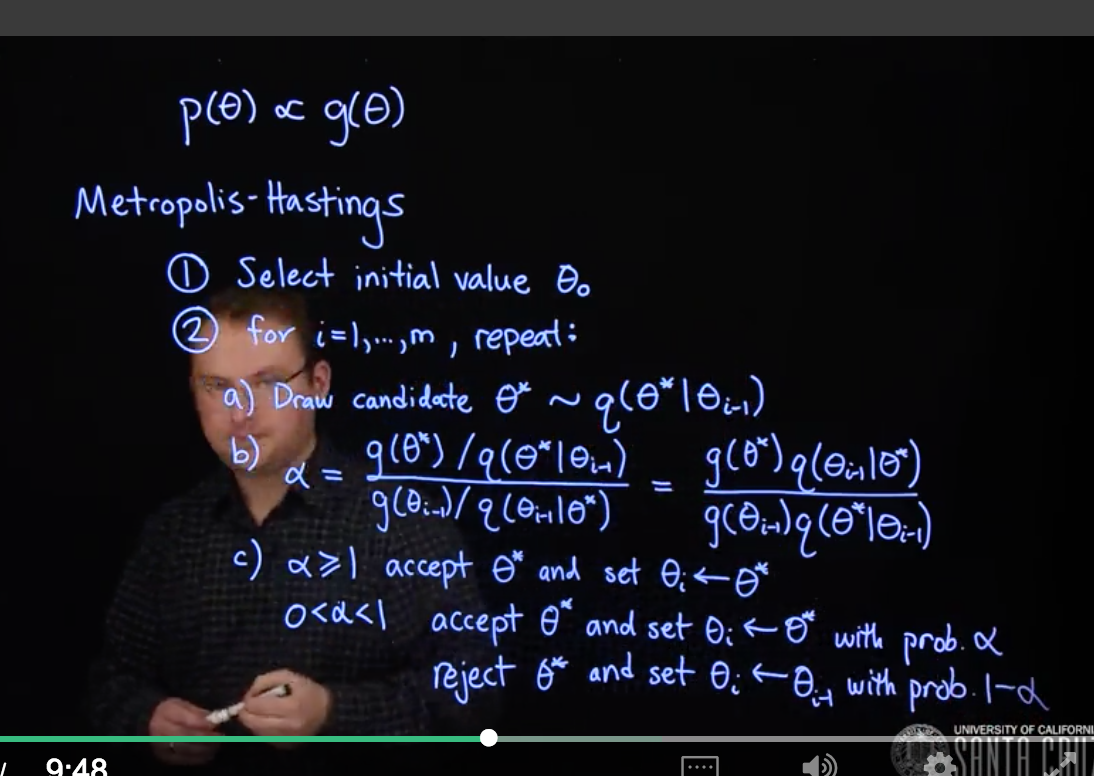 p(θ) ∝ g(θ)
Metropolis-Hastings
① Select initial value θ₀
② for i=1,...,m, repeat:
a) Draw candidate θ* ~ q(θ*|θᵢ₋₁)
b) α = g(θ*)/q(θ*|θᵢ₋₁) / g(θᵢ₋₁)/q(θᵢ₋₁|θ*) = g(θ*)q(θᵢ₋₁|θ*) / g(θᵢ₋₁)q(θ*|θᵢ₋₁)
c) α ≥ 1 accept θ* and set θᵢ ← θ*
0<α<1 accept θ* and set θᵢ ← θ* with prob. α
reject θ* and set θᵢ ← θᵢ₋₁ with prob. 1-α
UNIVERSITY OF CALIFORNI
SANTA CRUZ
/ 9:48